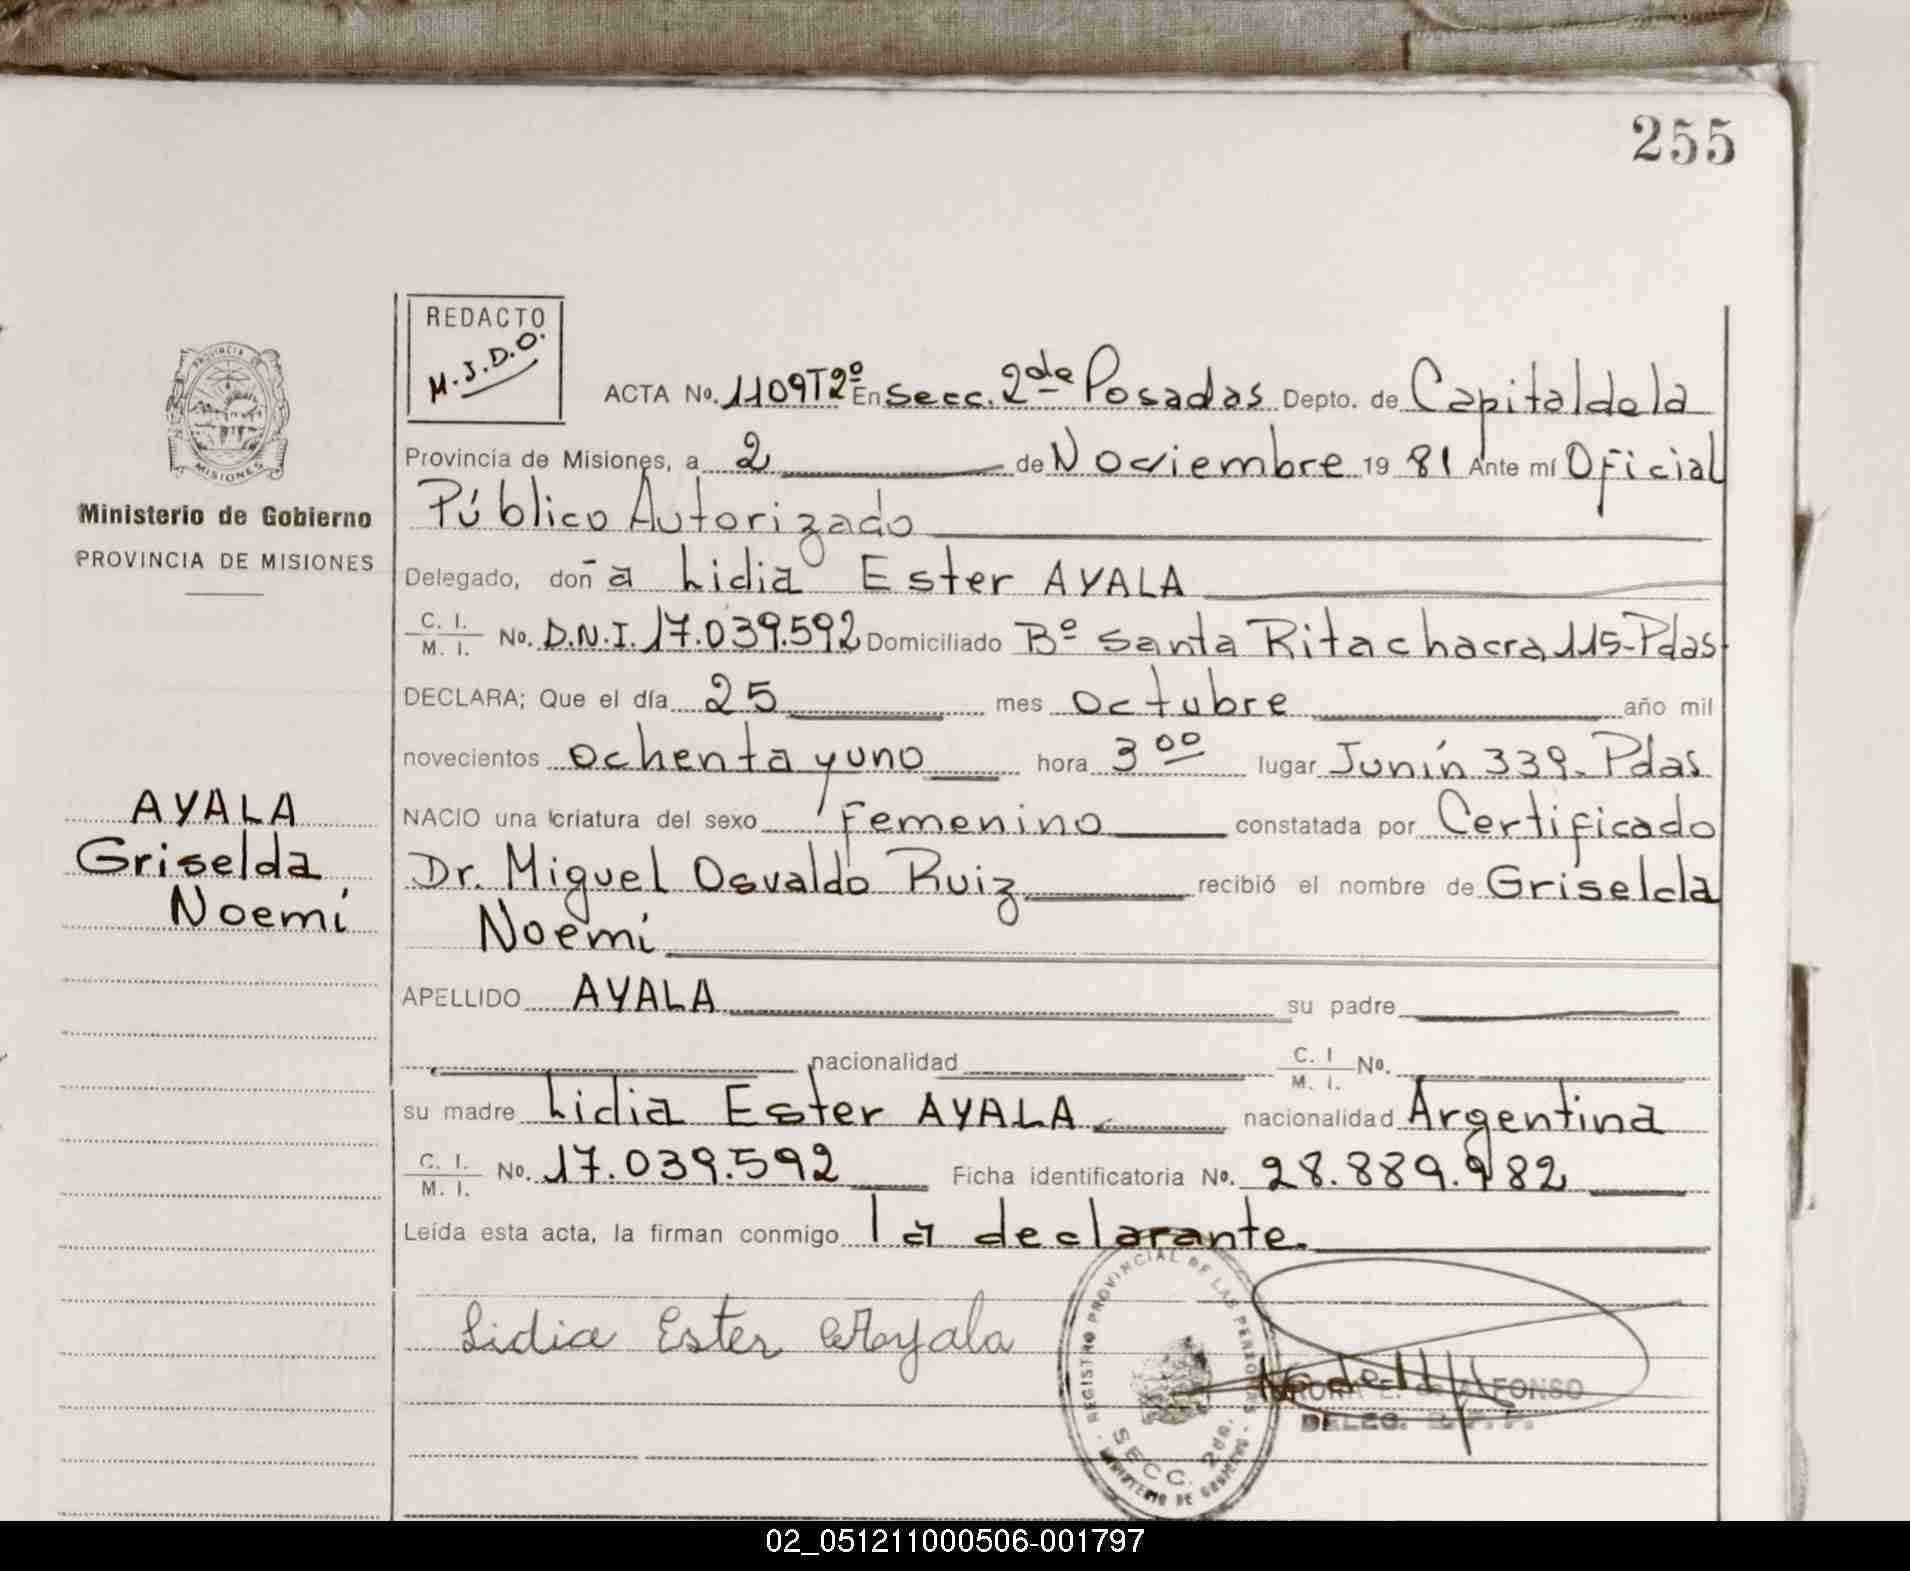 255
REDACTO
M.J.D.O.
ACTA No. 1109T2º En Secc. 2da Posadas Depto. de Capital de la
Provincia de Misiones, a 2 de Noviembre 19 81 Ante mí Oficial
Público Autorizado
Delegado, doña Lidia Ester AYALA
C. I.
M. I. No. D.N.I. 17.039.592 Domiciliado Bº Santa Rita chacra 115-Pdas
DECLARA; Que el día 25 mes octubre año mil
novecientos ochenta y uno hora 3 00 lugar Junín 339-Pdas
NACIO una criatura del sexo Femenino constatada por Certificado
Dr. Miguel Osvaldo Ruiz recibió el nombre de Griselda
Noemí
APELLIDO AYALA su padre
nacionalidad C. I
M. I. No.
su madre Lidia Ester AYALA nacionalidad Argentina
C. I.
M. I. No. 17.039.592 Ficha identificatoria No. 28.889.982
Leída esta acta, la firman conmigo la declarante.
Lidia Ester Ayala
REGISTRO PROVINCIAL DE LAS PERSONAS
SECC. 2da.
MINISTERIO DE GOBIERNO
ALFONSO
DELEG. R. P. P.
PROVINCIA DE
MISIONES
Ministerio de Gobierno
PROVINCIA DE MISIONES
AYALA
Griselda
Noemí
02_051211000506-001797